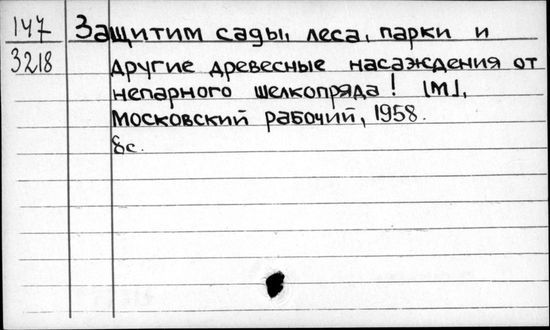 147
3218
Защитим сады, леса, парки и
другие древесные насаждения от
непарного шелкопряда! [М],
Московский рабочий, 1958.
8с.